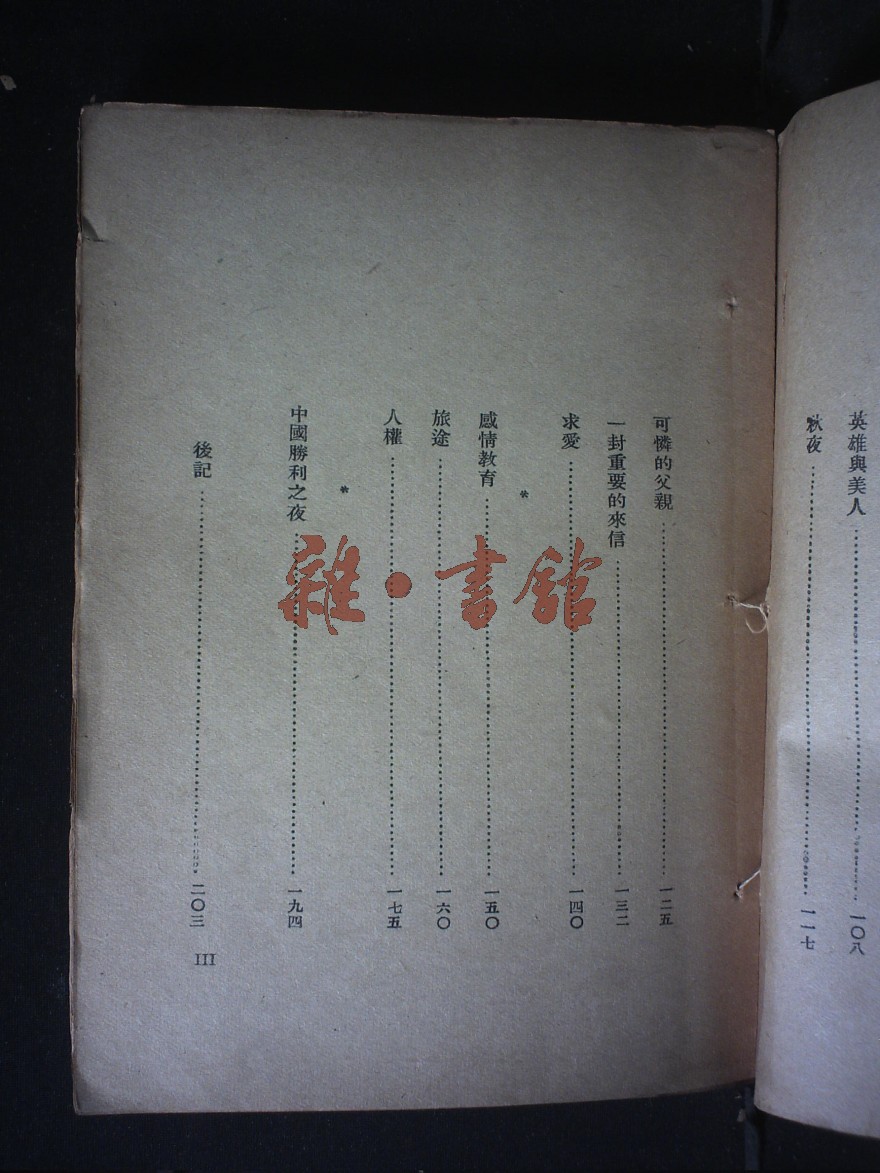 英雄與美人……一〇八
秋夜……一一七
可憐的父親……一二五
一封重要的來信……一三二
求愛……一四〇
*
感情教育……一五〇
旅途……一六〇
人權……一七五
*
中國勝利之夜……一九四
後記……二〇三
III
雜·書館